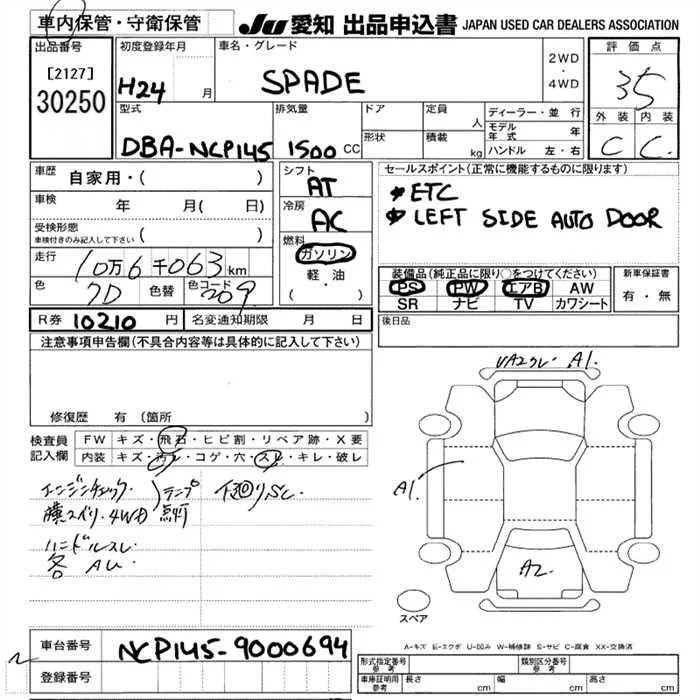 車内保管・守衛保管
JU 愛知 出品申込書 JAPAN USED CAR DEALERS ASSOCIATION
出品番号
[2127]
30250
初度登録年月
H24 月
車名・グレード
SPADE
2WD
・
4WD
評価点
3.5
外装 内装
C C
型式
DBA-NCP145
排気量
1500 CC
ドア
形状
定員
人
積載
kg
ディーラー・並行
モデル年式 年
ハンドル 左・右
車歴 自家用・( )
車検 年 月( 日)
受検形態
車検付きのみ記入して下さい ( )
走行 10万6千063km
色 7D 色替 色コード 209
R券 10210 円 名変通知期限 月 日
シフト
AT
冷房
AC
燃料
ガソリン
軽・油
( )
セールスポイント(正常に機能するものに限ります)
ETC
LEFT SIDE AUTO DOOR
装備品(純正品に限り○をつけてください)
PS PW エアB AW
SR ナビ TV カワシート
新車保証書
有・無
後日品
注意事項申告欄(不具合内容等は具体的に記入して下さい)
修復歴 有(箇所 )
検査員記入欄
FW キズ・飛石・ヒビ割・リペア跡・X要
内装 キズ・汚れ・コゲ・穴・スレ・キレ・破レ
エンジンチェック・
横スベリ・4WD
ランプ
点灯
下廻りSC
ハンドルスレ・
各 AU
A1.
A1.
A2
スペア
A-キズ E-エクボ U-凹み W-補修跡 S-サビ C-腐食 XX-交換済
車台番号 NCP145-9000694
登録番号
形式指定番号
参考
類別区分番号
参考
車庫証明用
参考
長さ cm 幅 cm 高さ cm